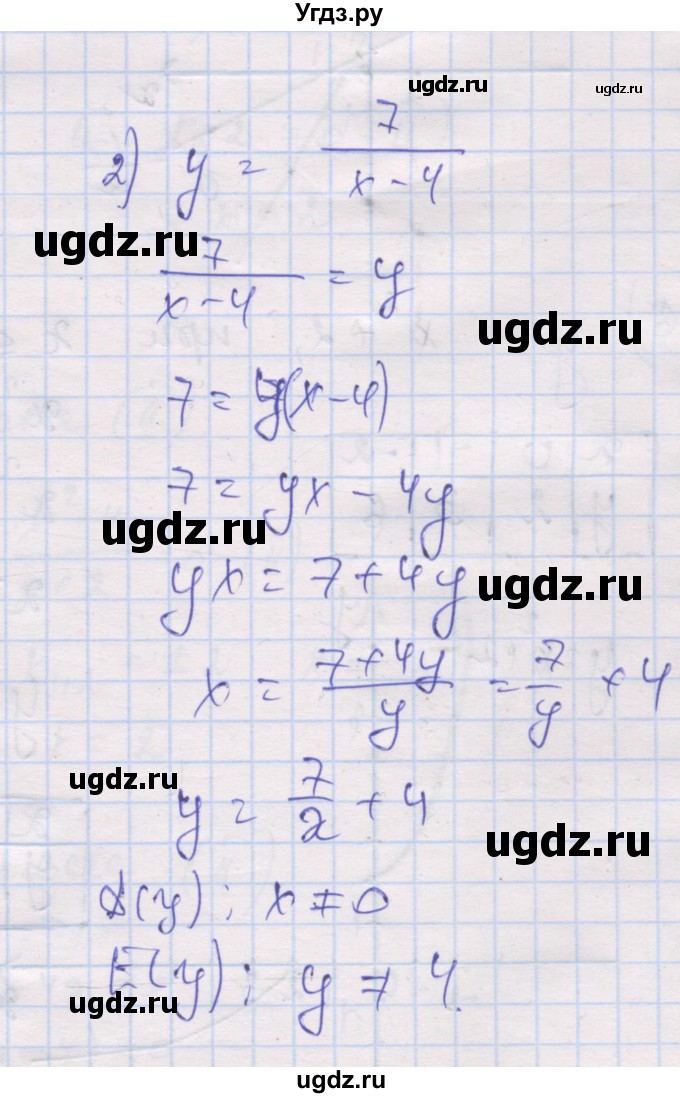 Угдз.ру
ugdz.ru ugdz.ru
2) y = 7/(x - 4)
ugdz.ru
7/(x - 4) = y
ugdz.ru
7 = y(x - 4)
7 = yx - 4y
ugdz.ru
yx = 7 + 4y
ugdz.ru
x = (7 + 4y)/y = 7/y + 4
ugdz.ru
y = 7/x + 4
ugdz.ru
D(y): x ≠ 0
E(y): y ≠ 4.
ugdz.ru
ugdz.ru